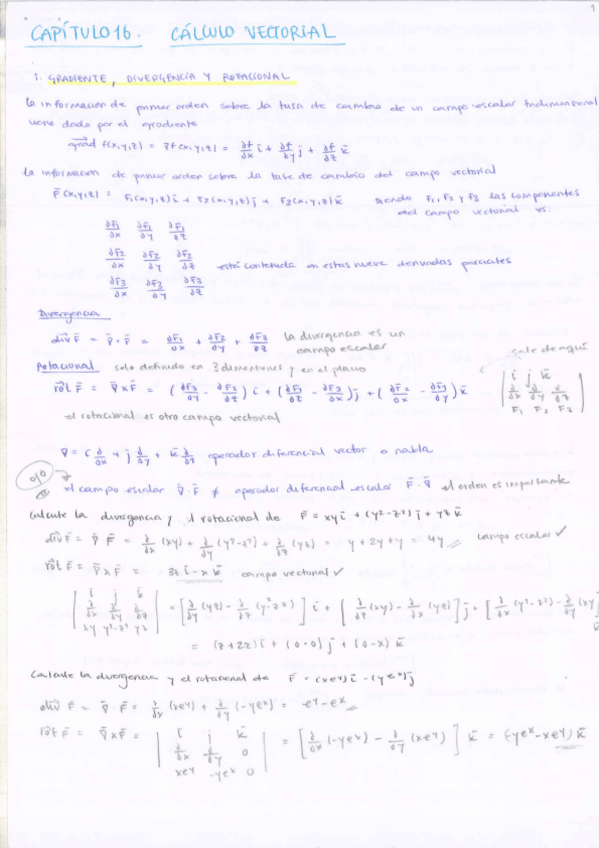 1
CAPÍTULO 16. CÁLCULO VECTORIAL
1. GRADIENTE, DIVERGENCIA Y ROTACIONAL
la información de primer orden sobre la tasa de cambio de un campo escalar tridimensional
viene dada por el gradiente
grad f(x,y,z) = ∇f(x,y,z) = ∂f/∂x i + ∂f/∂y j + ∂f/∂z k
la información de primer orden sobre la tasa de cambio del campo vectorial
F(x,y,z) = F₁(x,y,z)i + F₂(x,y,z)j + F₃(x,y,z)k siendo F₁, F₂ y F₃ las componentes
del campo vectorial
∂F₁/∂x ∂F₁/∂y ∂F₁/∂z
∂F₂/∂x ∂F₂/∂y ∂F₂/∂z está contenida en estas nueve derivadas parciales
∂F₃/∂x ∂F₃/∂y ∂F₃/∂z
Divergencia
div F = ∇·F = ∂F₁/∂x + ∂F₂/∂y + ∂F₃/∂z la divergencia es un
campo escalar
sale de aquí
Rotacional solo definido en 3 dimensiones y en el plano
rot F = ∇×F = (∂F₃/∂y - ∂F₂/∂z) i + (∂F₁/∂z - ∂F₃/∂x) j + (∂F₂/∂x - ∂F₁/∂y) k
| i j k |
| ∂/∂x ∂/∂y ∂/∂z |
| F₁ F₂ F₃ |
el rotacional es otro campo vectorial
∇ = i ∂/∂x + j ∂/∂y + k ∂/∂z operador diferencial vector o nabla
ojo
el campo escalar ∇·F ≠ operador diferencial escalar F·∇ el orden es importante
Calcule la divergencia y el rotacional de F = xy i + (y²-z²) j + yz k
div F = ∇·F = ∂/∂x (xy) + ∂/∂y (y²-z²) + ∂/∂z (yz) = y + 2y + y = 4y campo escalar ✓
rot F = ∇×F = 3z i - x k campo vectorial ✓
| i j k |
| ∂/∂x ∂/∂y ∂/∂z | = [∂/∂y (yz) - ∂/∂z (y²-z²)] i + [∂/∂z (xy) - ∂/∂x (yz)] j + [∂/∂x (y²-z²) - ∂/∂y (xy
| xy y²-z² yz |
= (z+2z) i + (0-0) j + (0-x) k
Calcule la divergencia y el rotacional de F = (xeʸ) i - (yeˣ) j
div F = ∇·F = ∂/∂x (xeʸ) + ∂/∂y (-yeˣ) = eʸ - eˣ
rot F = ∇×F = | i j k |
| ∂/∂x ∂/∂y 0 | = [∂/∂x (-yeˣ) - ∂/∂y (xeʸ)] k = (-yeˣ - xeʸ) k
| xeʸ -yeˣ 0 |